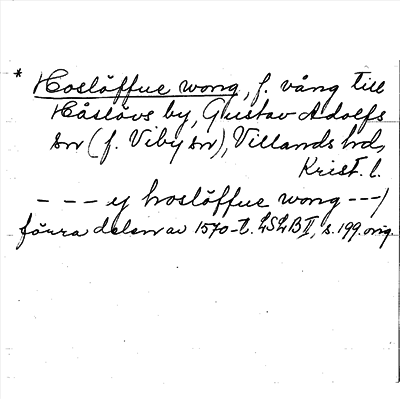 * Hoslöffue wong, f. vång till
Håslövs by, Gustav Adolfs
sn (f. Viby sn), Villands hd,
Krist. l.
- - - y hoslöffue wong ---/
förra delen av 1570-t. LSLB II, s. 199. orig.